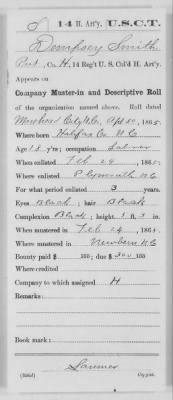 S 14 H. Art'y. U.S.C.T.
Dempsey Smith
Pvt, Co. H, 14 Reg't U. S. Col'd H. Art'y.
Appears on
Company Muster-in and Descriptive Roll
of the organization named above. Roll dated
Morehead City N.C., Apr 30, 1865.
Where born Halifax Co. N.C.
Age 18 y'rs; occupation
When enlisted Feb 24, 1865.
Where enlisted Plymouth N.C.
For what period enlisted 3 years.
Eyes Black; hair Black
Complexion Black; height 5 ft. 3 in.
When mustered in Feb 24, 1865.
Where mustered in Newbern N.C.
Bounty paid $ 100; due $ 300 100
Where credited
Company to which assigned H
Remarks:
Book mark:
(858d) Copyist.